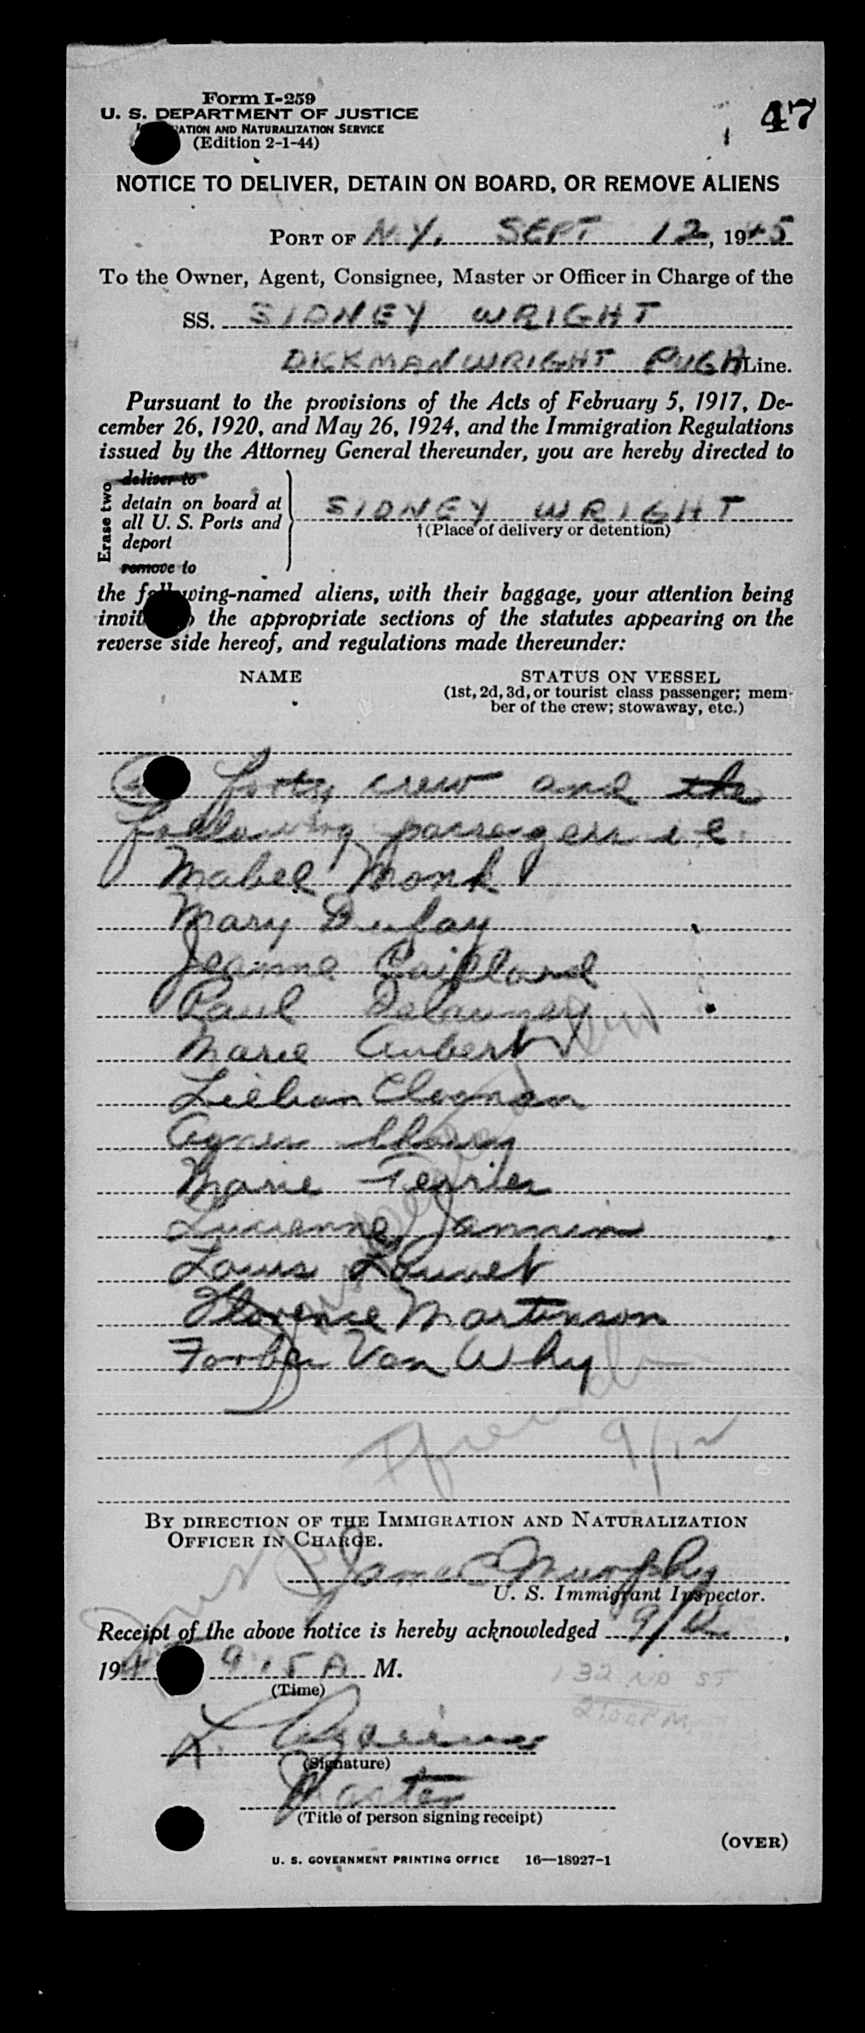 47
Form I-259
U. S. DEPARTMENT OF JUSTICE
ATION AND NATURALIZATION SERVICE
(Edition 2-1-44)
NOTICE TO DELIVER, DETAIN ON BOARD, OR REMOVE ALIENS
PORT OF N.Y. SEPT 12, 1945
To the Owner, Agent, Consignee, Master or Officer in Charge of the
SS. SIDNEY WRIGHT
DICKMAN WRIGHT PUGH Line.
Pursuant to the provisions of the Acts of February 5, 1917, De-
cember 26, 1920, and May 26, 1924, and the Immigration Regulations
issued by the Attorney General thereunder, you are hereby directed to
Erase two
deliver to
detain on board at
all U. S. Ports and
deport
remove to
SIDNEY WRIGHT
†(Place of delivery or detention)
the following-named aliens, with their baggage, your attention being
invit the appropriate sections of the statutes appearing on the
reverse side hereof, and regulations made thereunder:
NAME
STATUS ON VESSEL
(1st, 2d, 3d, or tourist class passenger; mem-
ber of the crew; stowaway, etc.)
forty crew and the
following passengers i.e.
Mabel Monk
Mary Dufay
Jeanne Gaillard
Paul Delauney
Marie Aubert
Lillian Cloonan
Agnes
Marie Terrier
Lucienne Jannin
Louis Louvet
Florence Martinson
Forbes Van Why
9/12
BY DIRECTION OF THE IMMIGRATION AND NATURALIZATION
OFFICER IN CHARGE.
James Murphy
U. S. Immigrant Inspector.
Receipt of the above notice is hereby acknowledged 9/12,
194 9:15 A M.
(Time)
132 ND ST
2:00 PM.
L.
(Signature)
Master
(Title of person signing receipt)
(OVER)
U. S. GOVERNMENT PRINTING OFFICE 16—18927-1